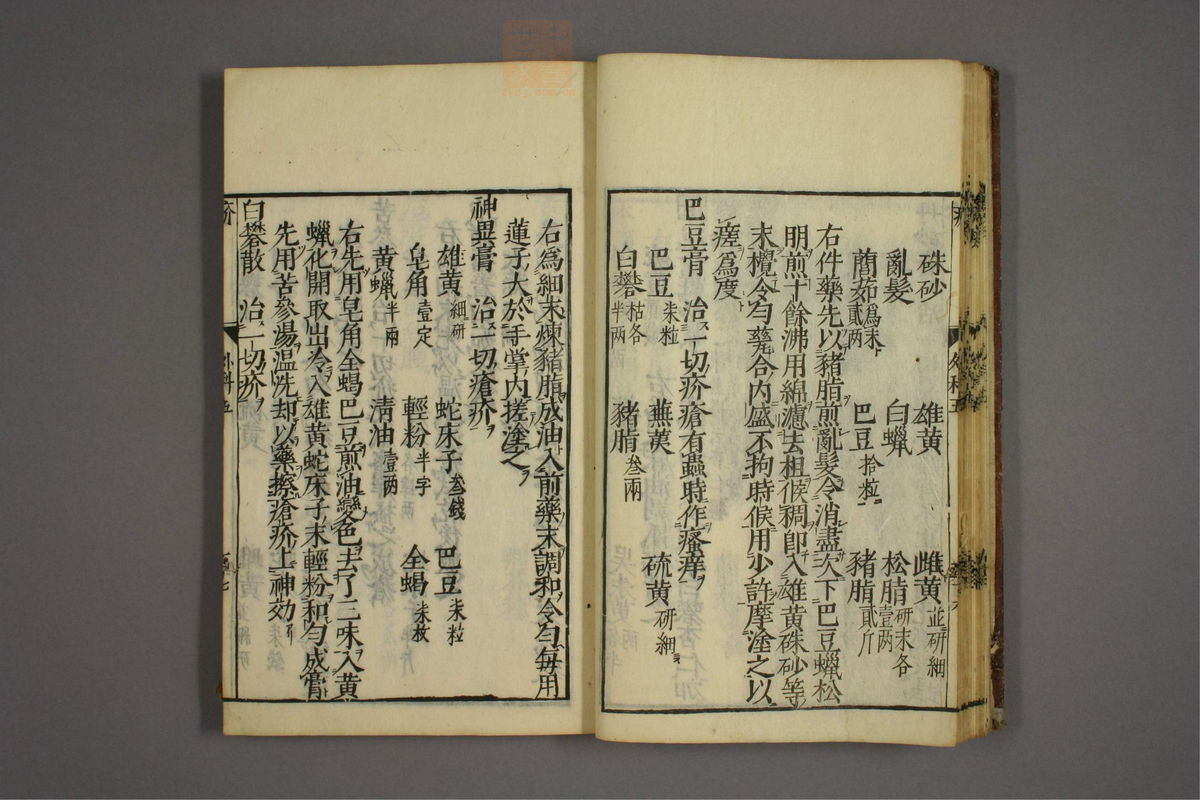 硃砂 雄黄 雌黄並研細
亂髮 白蠟 松脂研末各壹两
䕡茹爲末貳两 巴豆拾粒 豬脂貳斤
右件藥先以豬脂煎亂髮令消盡次下巴豆蠟松
明煎十餘沸用綿濾去柤候稠即入雄黄硃砂等
末攪令匀㽅合内盛不拘時候用少許摩塗之以
瘥爲度
巴豆膏 治一切疥瘡有蟲時作瘙痒
巴豆柒粒 蕪荑 硫黄研細
白礬枯各半两 豬脂叁兩
右爲細末煉豬脂成油入前藥末調和令匀每用
蓮子大於手掌内搓塗之
神異膏 治一切瘡疥
雄黄細研 蛇床子叁錢 巴豆柒粒
皂角壹定 輕粉半字 全蝎柒枚
黄蠟半兩 清油壹两
右先用皂角全蝎巴豆煎油變色去了三味入黄
蠟化開取出冷入雄黄蛇床子末輕粉和匀成膏
先用苦參湯温洗却以藥擦瘡疥上神効
白礬散 治一切疥
疥 外科五 七